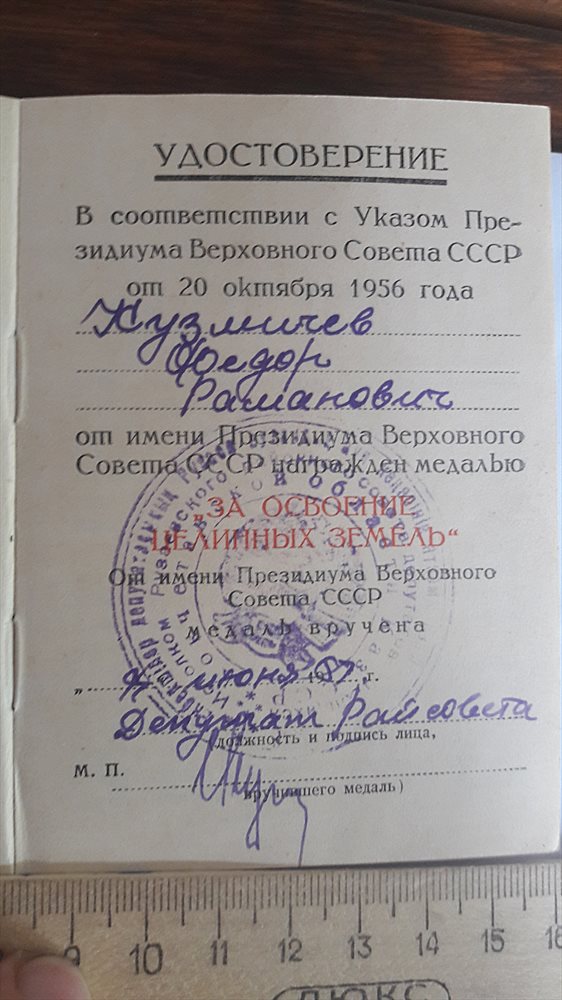 УДОСТОВЕРЕНИЕ
В соответствии с Указом Пре-
зидиума Верховного Совета СССР
от 20 октября 1956 года
Кузмичев
Федор
Раманович
от имени Президиума Верховного
Совета СССР награжден медалью
„ЗА ОСВОЕНИЕ
ЦЕЛИННЫХ ЗЕМЕЛЬ“
От имени Президиума Верховного
Совета СССР
медаль вручена
июня 1957 г.
Депутат Райсовета
(должность и подпись лица,
М. П.
вручившего медаль)
9 10 11 12 13 14 15 16
ЛЮКС